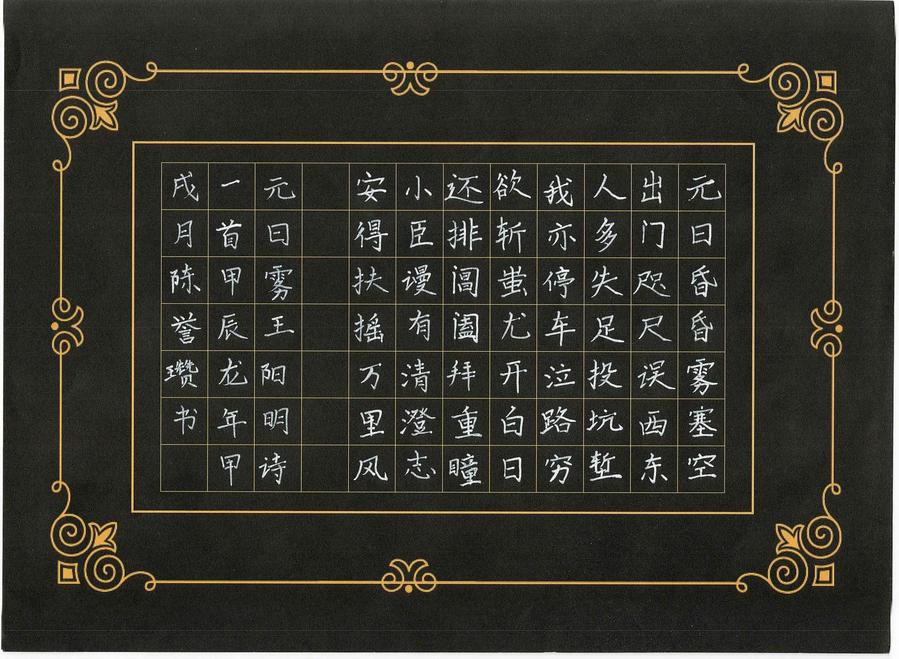 元日昏昏雾塞空
出门咫尺误西东
人多失足投坑堑
我亦停车泣路穷
欲斩蚩尤开白日
还排阊阖拜重瞳
小臣谩有清澄志
安得扶摇万里风
元日雾王阳明诗
一首甲辰龙年甲
戌月陈誉瓒书